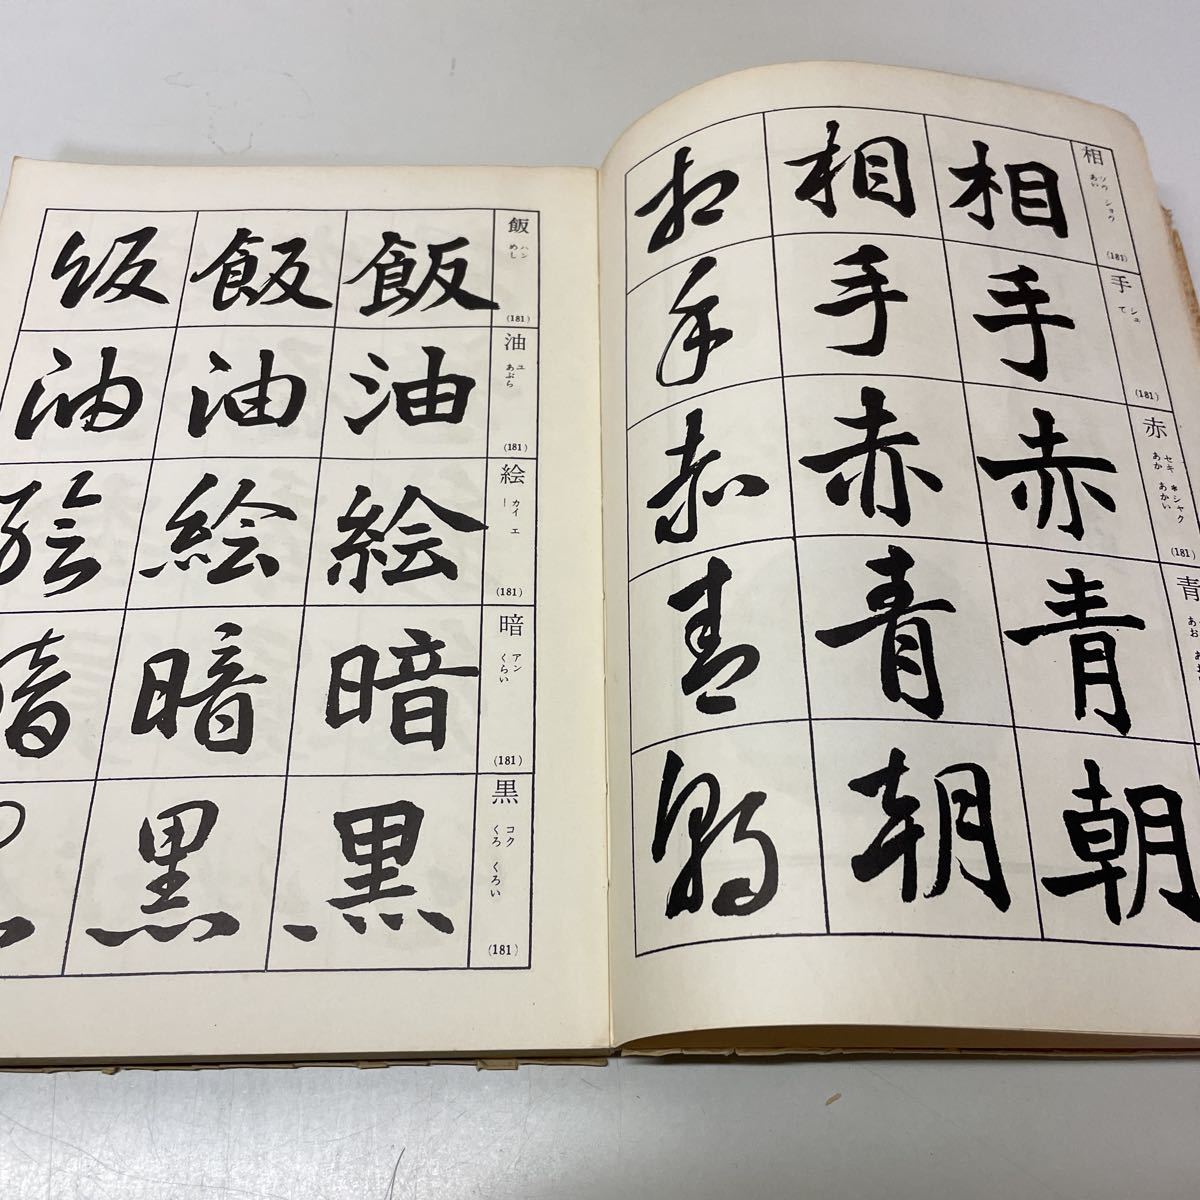 相 ソウ ショウ あい (181)
相 相 相
手 シュ て (181)
手 手 手
赤 セキ *シャク あか あかい (181)
赤 赤 赤
青 あお
青 青 青
朝 朝 朝
飯 ハン めし (181)
飯 飯 飯
油 ユ あぶら (181)
油 油 油
絵 カイ エ (181)
絵 絵 絵
暗 アン くらい (181)
暗 暗 暗
黒 コク くろ くろい (181)
黒 黒